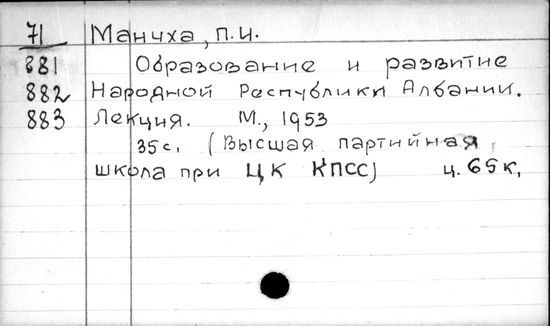 71 Манчха, П.И.
881 Образование и развитие
882 Народной Республики Албании.
883 Лекция. М., 1953
35с. (Высшая партийная
школа при ЦК КПСС) ц. 65к.